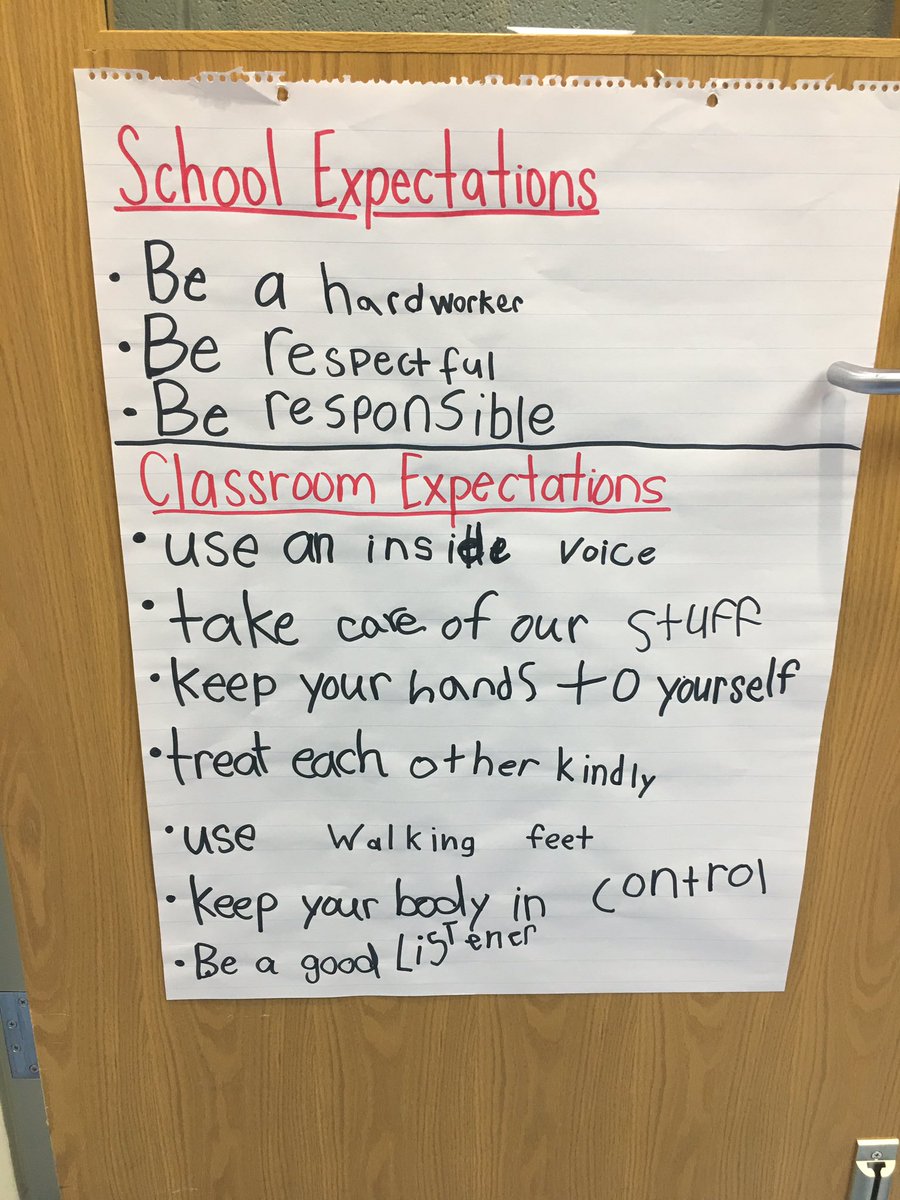 School Expectations
• Be a hardworker
• Be respectful
• Be responsible
Classroom Expectations
• use an inside voice
• take care of our stuff
• keep your hands to yourself
• treat each other kindly
• use walking feet
• keep your body in control
• Be a good Listener